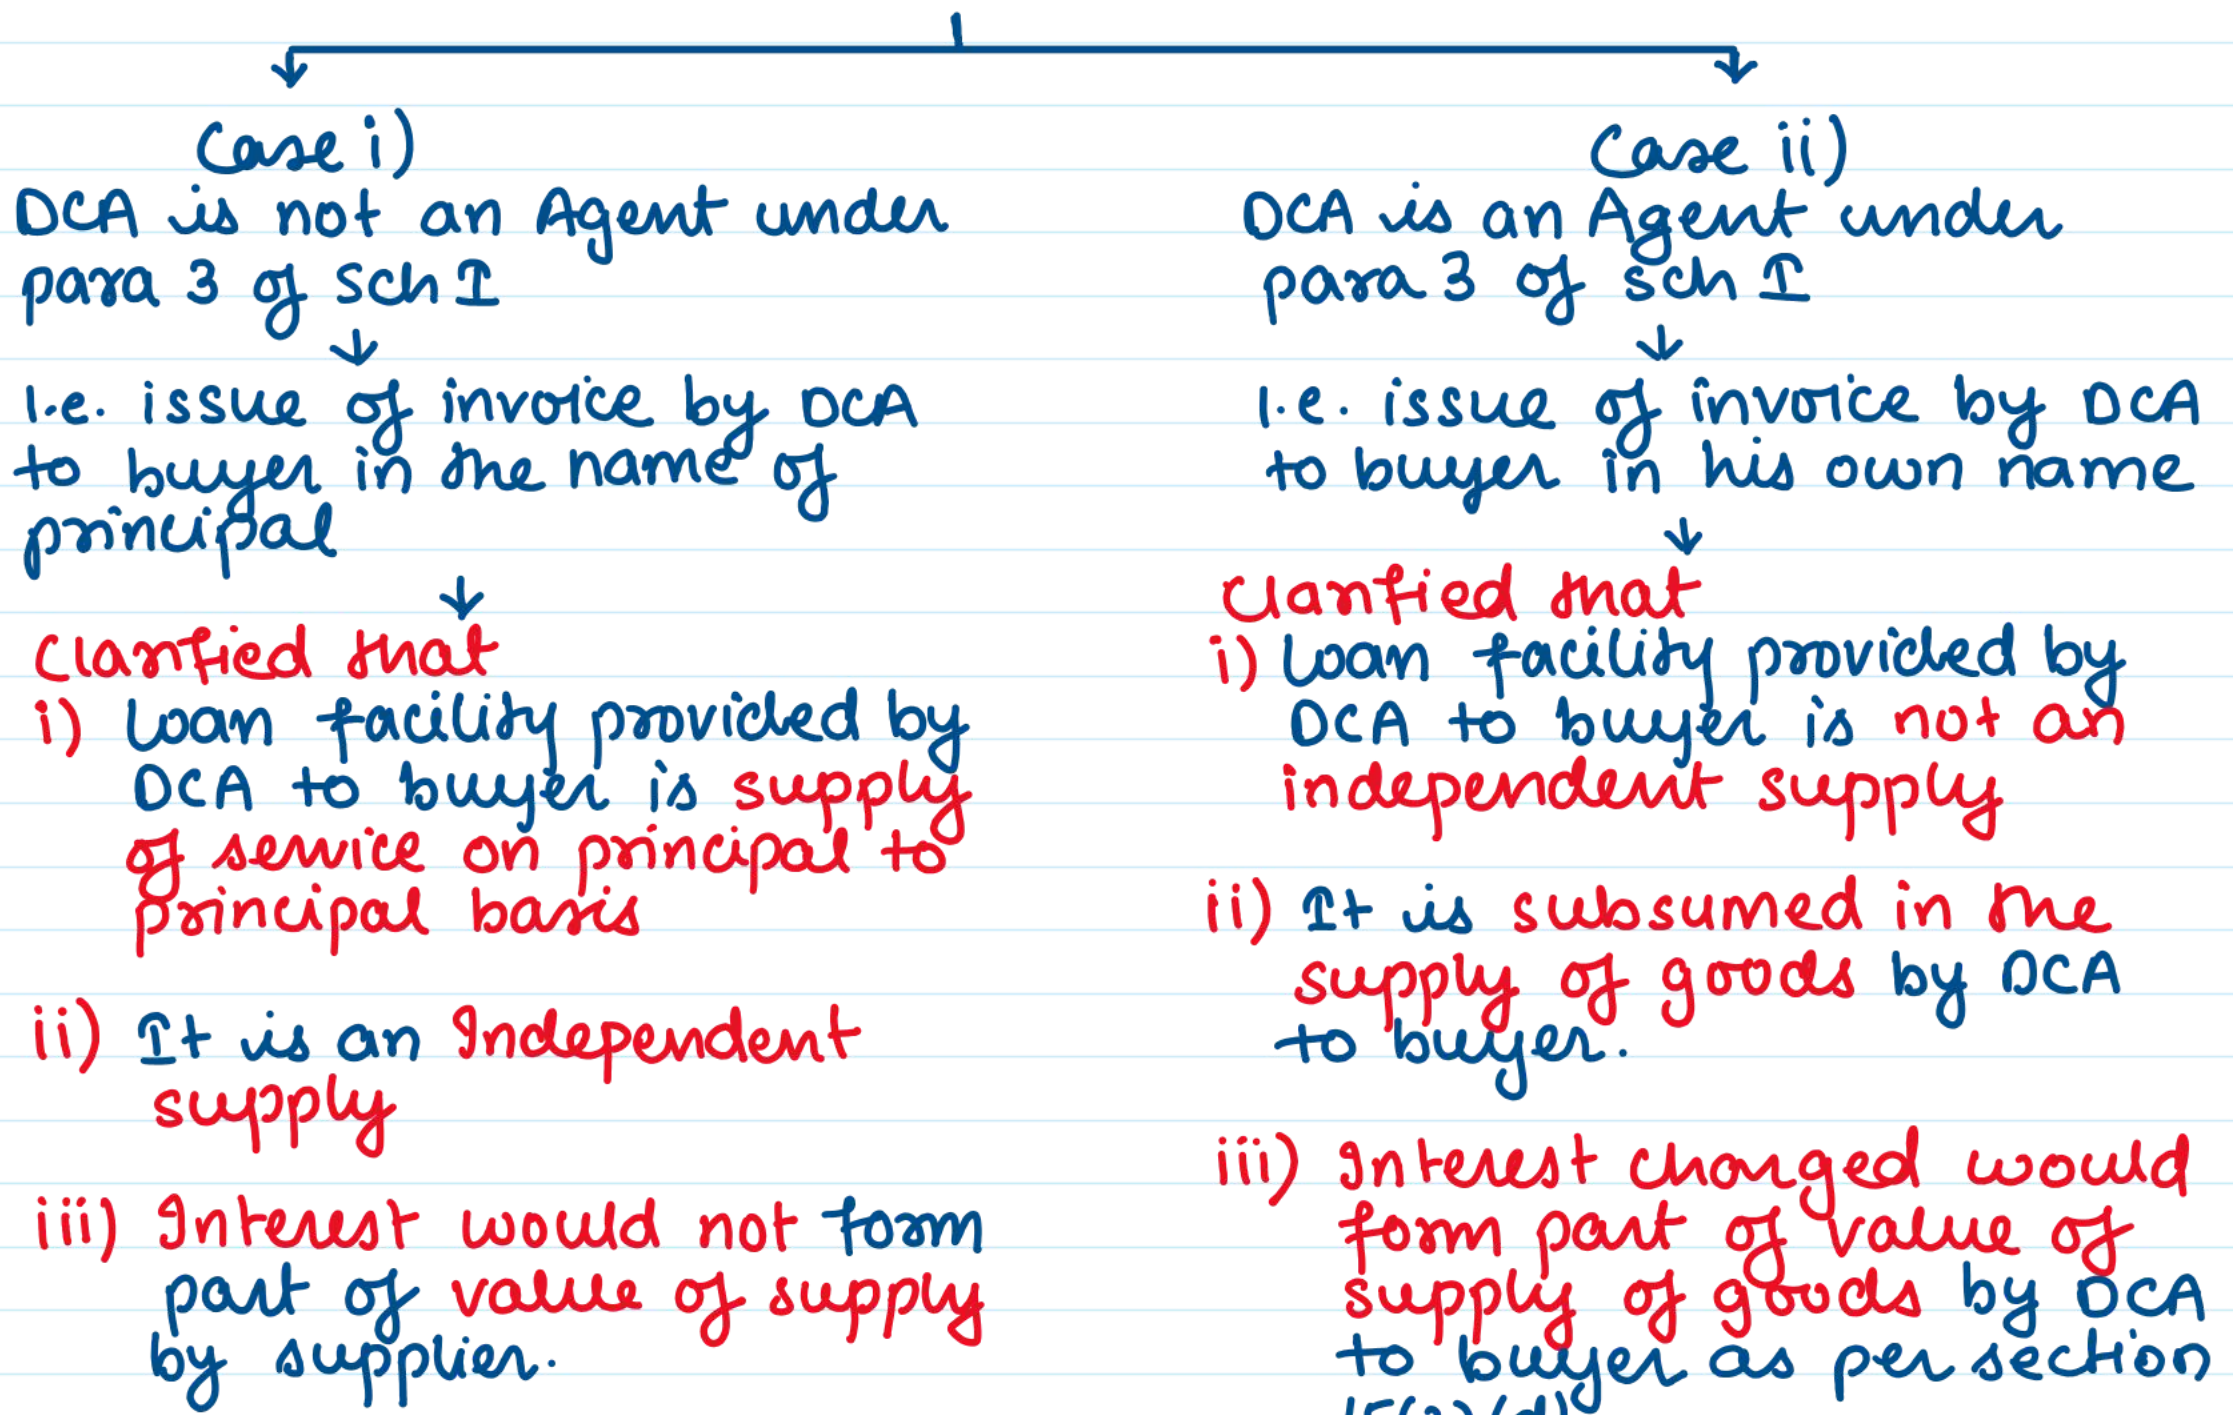 Case i)
DCA is not an Agent under
para 3 of Sch I
I.e. issue of invoice by DCA
to buyer in the name of
principal
Clarified that
i) Loan facility provided by
DCA to buyer is supply
of service on principal to
principal basis
ii) It is an Independent
supply
iii) Interest would not form
part of value of supply
by supplier.
Case ii)
DCA is an Agent under
para 3 of Sch I
I.e. issue of invoice by DCA
to buyer in his own name
Clarified that
i) Loan facility provided by
DCA to buyer is not an
independent supply
ii) It is subsumed in the
supply of goods by DCA
to buyer.
iii) Interest charged would
form part of value of
supply of goods by DCA
to buyer as per section